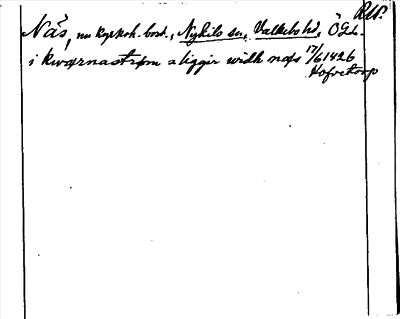 RAP.
Näs, nu kyrkoh. bost., Nykils sn, Valkebo hd, ÖGL.
i kwærnastrøm a liggir widh næs 17/6 1426
Hofretorp